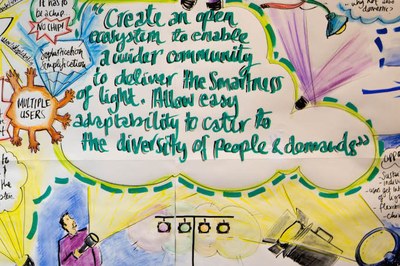 "Create an open
ecosystem to enable
a wider community
to deliver the smartness
of light. Allow easy
adaptability to cater to
the diversity of people & demands"
It has to
be a chip
NO CHIP!
Sophistication
Simplification
MULTIPLE
USERS
why not